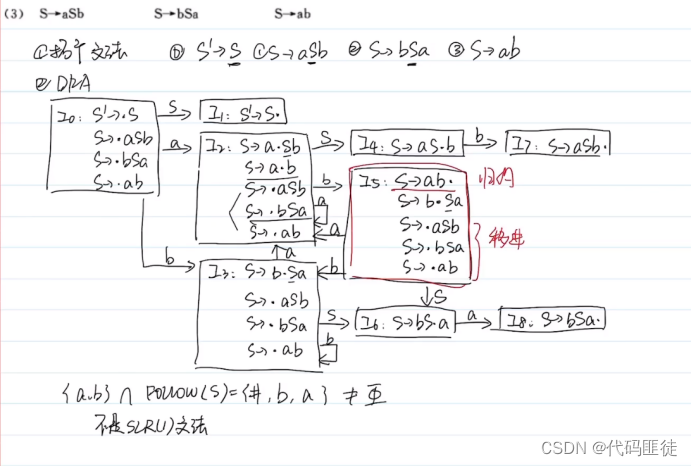 (3) S→aSb S→bSa S→ab
①扩个文法 ⓪ S'→S ①S→aSb ② S→bSa ③ S→ab
② DFA
I0: S'→·S
S→·aSb
S→·bSa
S→·ab
S
I1: S'→S·
a
I2: S→a·Sb
S→a·b
S→·aSb
S→·bSa
S→·ab
S
I4: S→aS·b
b
I7: S→aSb·
b
a
a
I5: S→ab·
S→b·Sa
S→·aSb
S→·bSa
S→·ab
归约
移进
b
a
b
I3: S→b·Sa
S→·aSb
S→·bSa
S→·ab
S
S
b
I6: S→bS·a
a
I8: S→bSa·
{a,b} ∩ FOLLOW(S)={#, b, a } ≠ 
不是SLR(1)文法
CSDN @代码匪徒